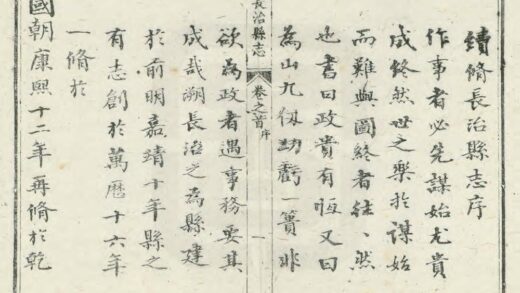 續脩長治縣志序
作事者必先謀始尤貴
成終然世之樂於謀始
而難與圖終者往々然
也書曰政貴有恆又曰
為山九仞功虧一簣非
欲為政者遇事務要其
成哉溯長治之為縣建
長治縣志
卷之首序
一
於前明嘉靖十年縣之
有志創於萬曆十六年
一脩於
國朝康熙十二年再脩於乾